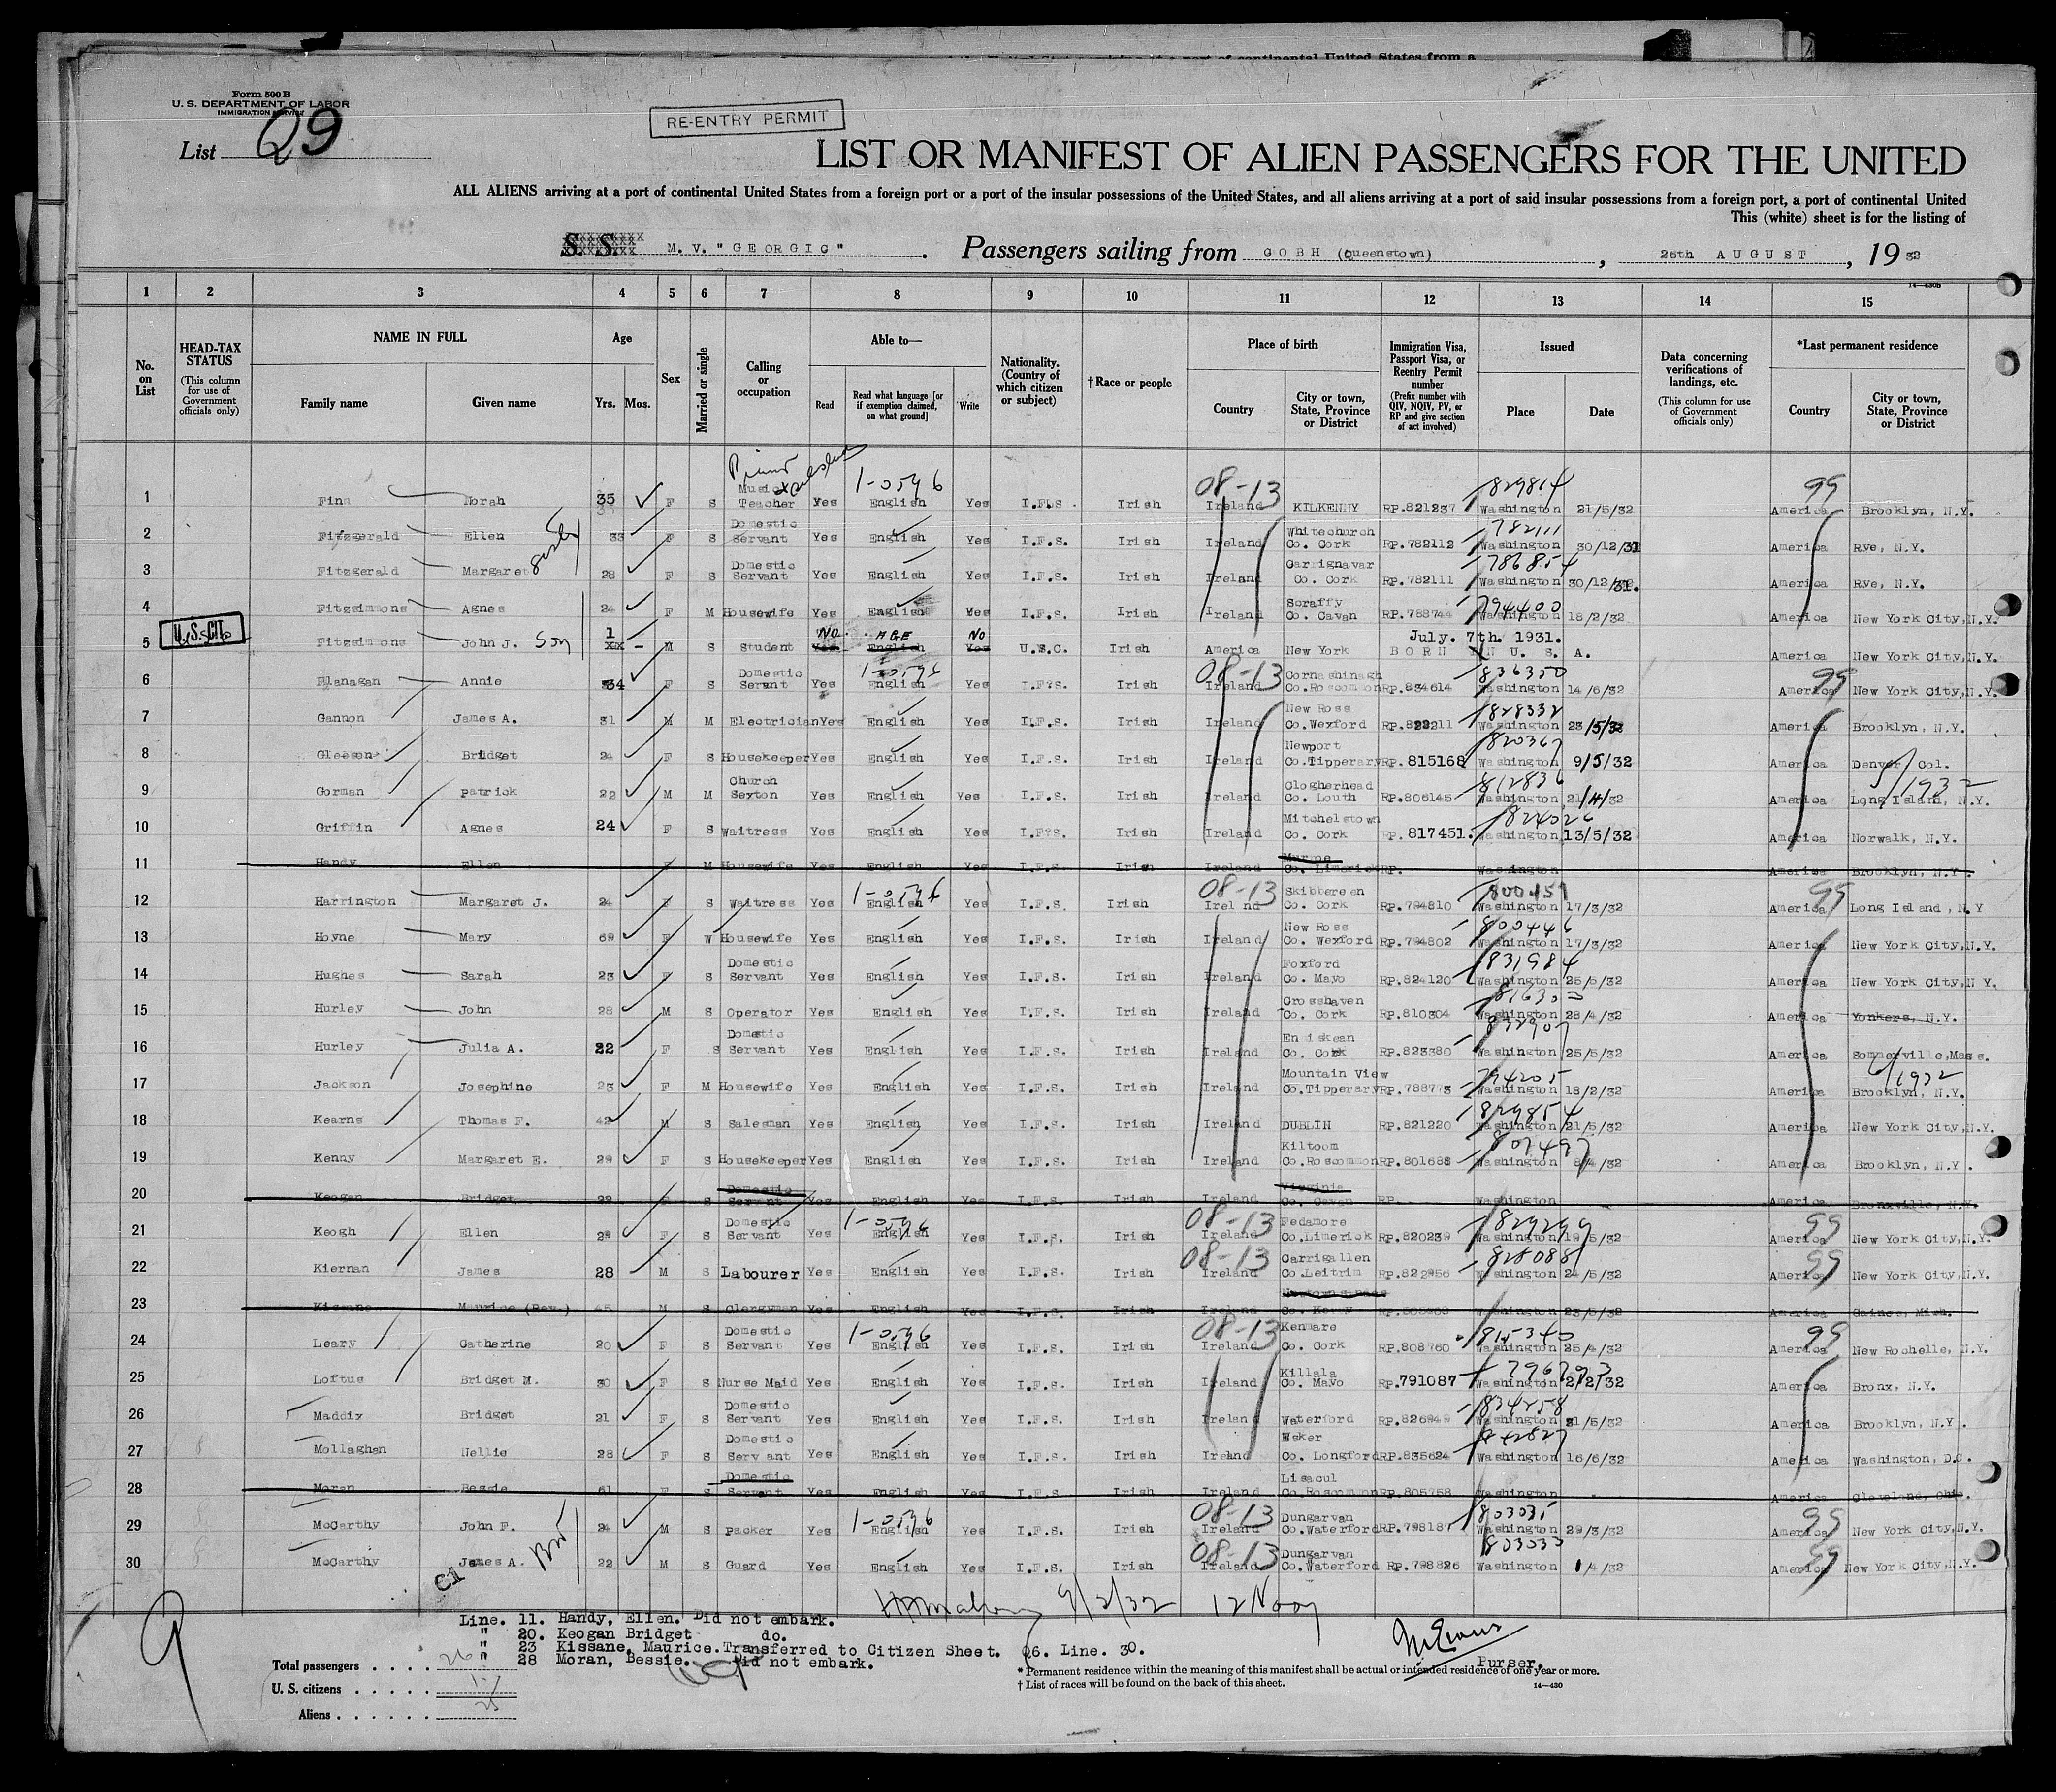 Form 500 B
U. S. DEPARTMENT OF LABOR
IMMIGRATION SERVICE
List Q9
RE-ENTRY PERMIT
LIST OR MANIFEST OF ALIEN PASSENGERS FOR THE UNITED
ALL ALIENS arriving at a port of continental United States from a foreign port or a port of the insular possessions of the United States, and all aliens arriving at a port of said insular possessions from a foreign port, a port of continental United
This (white) sheet is for the listing of
S. S. M. V. "GEORGIC". Passengers sailing from COBH (Queenstown), 26th AUGUST, 1932
14—430B
1 2 3 4 5 6 7 8 9 10 11 12 13 14 15
No. on List
HEAD-TAX STATUS (This column for use of Government officials only)
NAME IN FULL Family name Given name
Age Yrs. Mos.
Sex
Married or single
Calling or occupation
Able to— Read Read what language [or if exemption claimed, on what ground] Write
Nationality. (Country of which citizen or subject)
†Race or people
Place of birth Country City or town, State, Province or District
Immigration Visa, Passport Visa, or Reentry Permit number (Prefix number with QIV, NQIV, PV, or RP and give section of act involved)
Issued Place Date
Data concerning verifications of landings, etc. (This column for use of Government officials only)
*Last permanent residence Country City or town, State, Province or District
1 Finn Norah 35 F S Music Teacher Yes 1-0596 English Yes I.F.S. Irish 08-13 Ireland KILKENNY RP.821237 829814 Washington 21/5/32 99 America Brooklyn, N.Y.
2 Fitzgerald Ellen 33 F S Domestic Servant Yes English Yes I.F.S. Irish Ireland Whitechurch Co. Cork RP.782112 782111 Washington 30/12/31 America Rye, N.Y.
3 Fitzgerald Margaret 28 F S Domestic Servant Yes English Yes I.F.S. Irish Ireland Carrignavar Co. Cork RP.782111 786854 Washington 30/12/31. America Rye, N.Y.
4 Fitzsimmons Agnes 24 F M Housewife Yes English Yes I.F.S. Irish Ireland Soraffy Co. Cavan RP.788744 794400 Washington 18/2/32 America New York City, N.Y.
5 U.S. CIT. Fitzsimmons John J. Son 1 M S Student No AGE No U.S.C. Irish America New York July. 7th. 1931. BORN IN U. S. A. America New York City, N.Y.
6 Flanagan Annie 34 F S Domestic Servant Yes 1-0596 English Yes I.F.S. Irish 08-13 Ireland Cornashinagh Co. Roscommon RP.834614 836350 Washington 14/6/32 99 America New York City, N.Y.
7 Gannon James A. 31 M M Electrician Yes English Yes I.F.S. Irish Ireland New Ross Co. Wexford RP.822211 828332 Washington 23/5/32 America Brooklyn, N.Y.
8 Gleeson Bridget 24 F S Housekeeper Yes English Yes I.F.S. Irish Ireland Newport Co. Tipperary RP.815168 820367 Washington 9/5/32 America Denver, Col.
9 Gorman Patrick 22 M M Church Sexton Yes English Yes I.F.S. Irish Ireland Clogherhead Co. Louth RP.806145 812836 Washington 21/4/32 America 5/1932 Long Island, N.Y.
10 Griffin Agnes 24 F S Waitress Yes English Yes I.F.S. Irish Ireland Mitchelstown Co. Cork RP.817451. 824026 Washington 13/5/32 America Norwalk, N.Y.
11 Handy Ellen F M Housewife Yes English Yes I.F.S. Irish Ireland Co. Limerick RP. Washington America Brooklyn, N.Y.
12 Harrington Margaret J. 24 F S Waitress Yes 1-0596 English Yes I.F.S. Irish 08-13 Ireland Skibbereen Co. Cork RP.794810 800451 Washington 17/3/32 99 America Long Island, N.Y
13 Hoyne Mary 69 F W Housewife Yes English Yes I.F.S. Irish Ireland New Ross Co. Wexford RP.794802 800446 Washington 17/3/32 America New York City, N.Y.
14 Hughes Sarah 23 F S Domestic Servant Yes English Yes I.F.S. Irish Ireland Foxford Co. Mayo RP.824120 831984 Washington 25/5/32 America New York City, N.Y.
15 Hurley John 28 M S Operator Yes English Yes I.F.S. Irish Ireland Crosshaven Co. Cork RP.810304 816300 Washington 28/4/32 America Yonkers, N.Y.
16 Hurley Julia A. 22 F S Domestic Servant Yes English Yes I.F.S. Irish Ireland Eniskean Co. Cork RP.823380 832907 Washington 25/5/32 America Sommerville, Mass.
17 Jackson Josephine 23 F M Housewife Yes English Yes I.F.S. Irish Ireland Mountain View Co. Tipperary RP.788773 794205 Washington 18/2/32 America 6/1932 Brooklyn, N.Y.
18 Kearns Thomas F. 42 M S Salesman Yes English Yes I.F.S. Irish Ireland DUBLIN RP.821220 829854 Washington 21/5/32 America New York City, N.Y.
19 Kenny Margaret E. 29 F S Housekeeper Yes English Yes I.F.S. Irish Ireland Kiltoom Co. Roscommon RP.801688 807497 Washington 8/4/32 America Brooklyn, N.Y.
20 Keogan Bridget 22 F S Domestic Servant Yes English Yes I.F.S. Irish Ireland Virginia Co. Cavan RP. Washington America Bronxville, N.Y.
21 Keogh Ellen 29 F S Domestic Servant Yes 1-0596 English Yes I.F.S. Irish 08-13 Ireland Fedamore Co. Limerick RP.820239 829299 Washington 19/5/32 99 America New York City, N.Y.
22 Kiernan James 28 M S Labourer Yes English Yes I.F.S. Irish 08-13 Ireland Carrigallen Co. Leitrim RP.822956 828088 Washington 24/5/32 99 America New York City, N.Y.
23 Kissane Maurice (Rev.) 45 M S Clergyman Yes English Yes I.F.S. Irish Ireland Co. Kerry Washington 23/5/32 America Gaines, Mich.
24 Leary Catherine 20 F S Domestic Servant Yes 1-0596 English Yes I.F.S. Irish 08-13 Ireland Kenmare Co. Cork RP.808760 815340 Washington 25/4/32 99 America New Rochelle, N.Y.
25 Loftus Bridget M. 30 F S Nurse Maid Yes English Yes I.F.S. Irish Ireland Killala Co. Mayo RP.791087 796793 Washington 2/2/32 America Bronx, N.Y.
26 Maddix Bridget 21 F S Domestic Servant Yes English Yes I.F.S. Irish Ireland Waterford RP.826949 834258 Washington 31/5/32 America Brooklyn, N.Y.
27 Mollaghan Nellie 28 F S Domestic Servant Yes English Yes I.F.S. Irish Ireland Co. Longford RP.835624 842827 Washington 16/6/32 America Washington, D.C.
28 Moran Bessie 61 F S Domestic Servant Yes English Yes I.F.S Irish Ireland Lisacul Co. Roscommon RP.805758 Washington America Cleveland, Ohio.
29 McCarthy John F. 24 M S Packer Yes 1-0596 English Yes I.F.S. Irish 08-13 Ireland Dungarvan Co. Waterford RP.798187 803035 Washington 29/3/32 99 America New York City, N.Y.
30 McCarthy James A. 22 M S Guard Yes English Yes I.F.S. Irish 08-13 Ireland Dungarvan Co. Waterford RP.798826 803033 Washington 1/4/32 99 America New York City, N.Y.
9/2/32 12 Noon
Line. 11. Handy, Ellen. Did not embark.
" 20. Keogan Bridget do.
" 23 Kissane, Maurice. Transferred to Citizen Sheet. Q6. Line. 30.
" 28 Moran, Bessie. Did not embark.
Purser.
Total passengers . . . . 26
U. S. citizens . . . . . 1
Aliens . . . . . . 25
* Permanent residence within the meaning of this manifest shall be actual or intended residence of one year or more.
† List of races will be found on the back of this sheet.
14—430